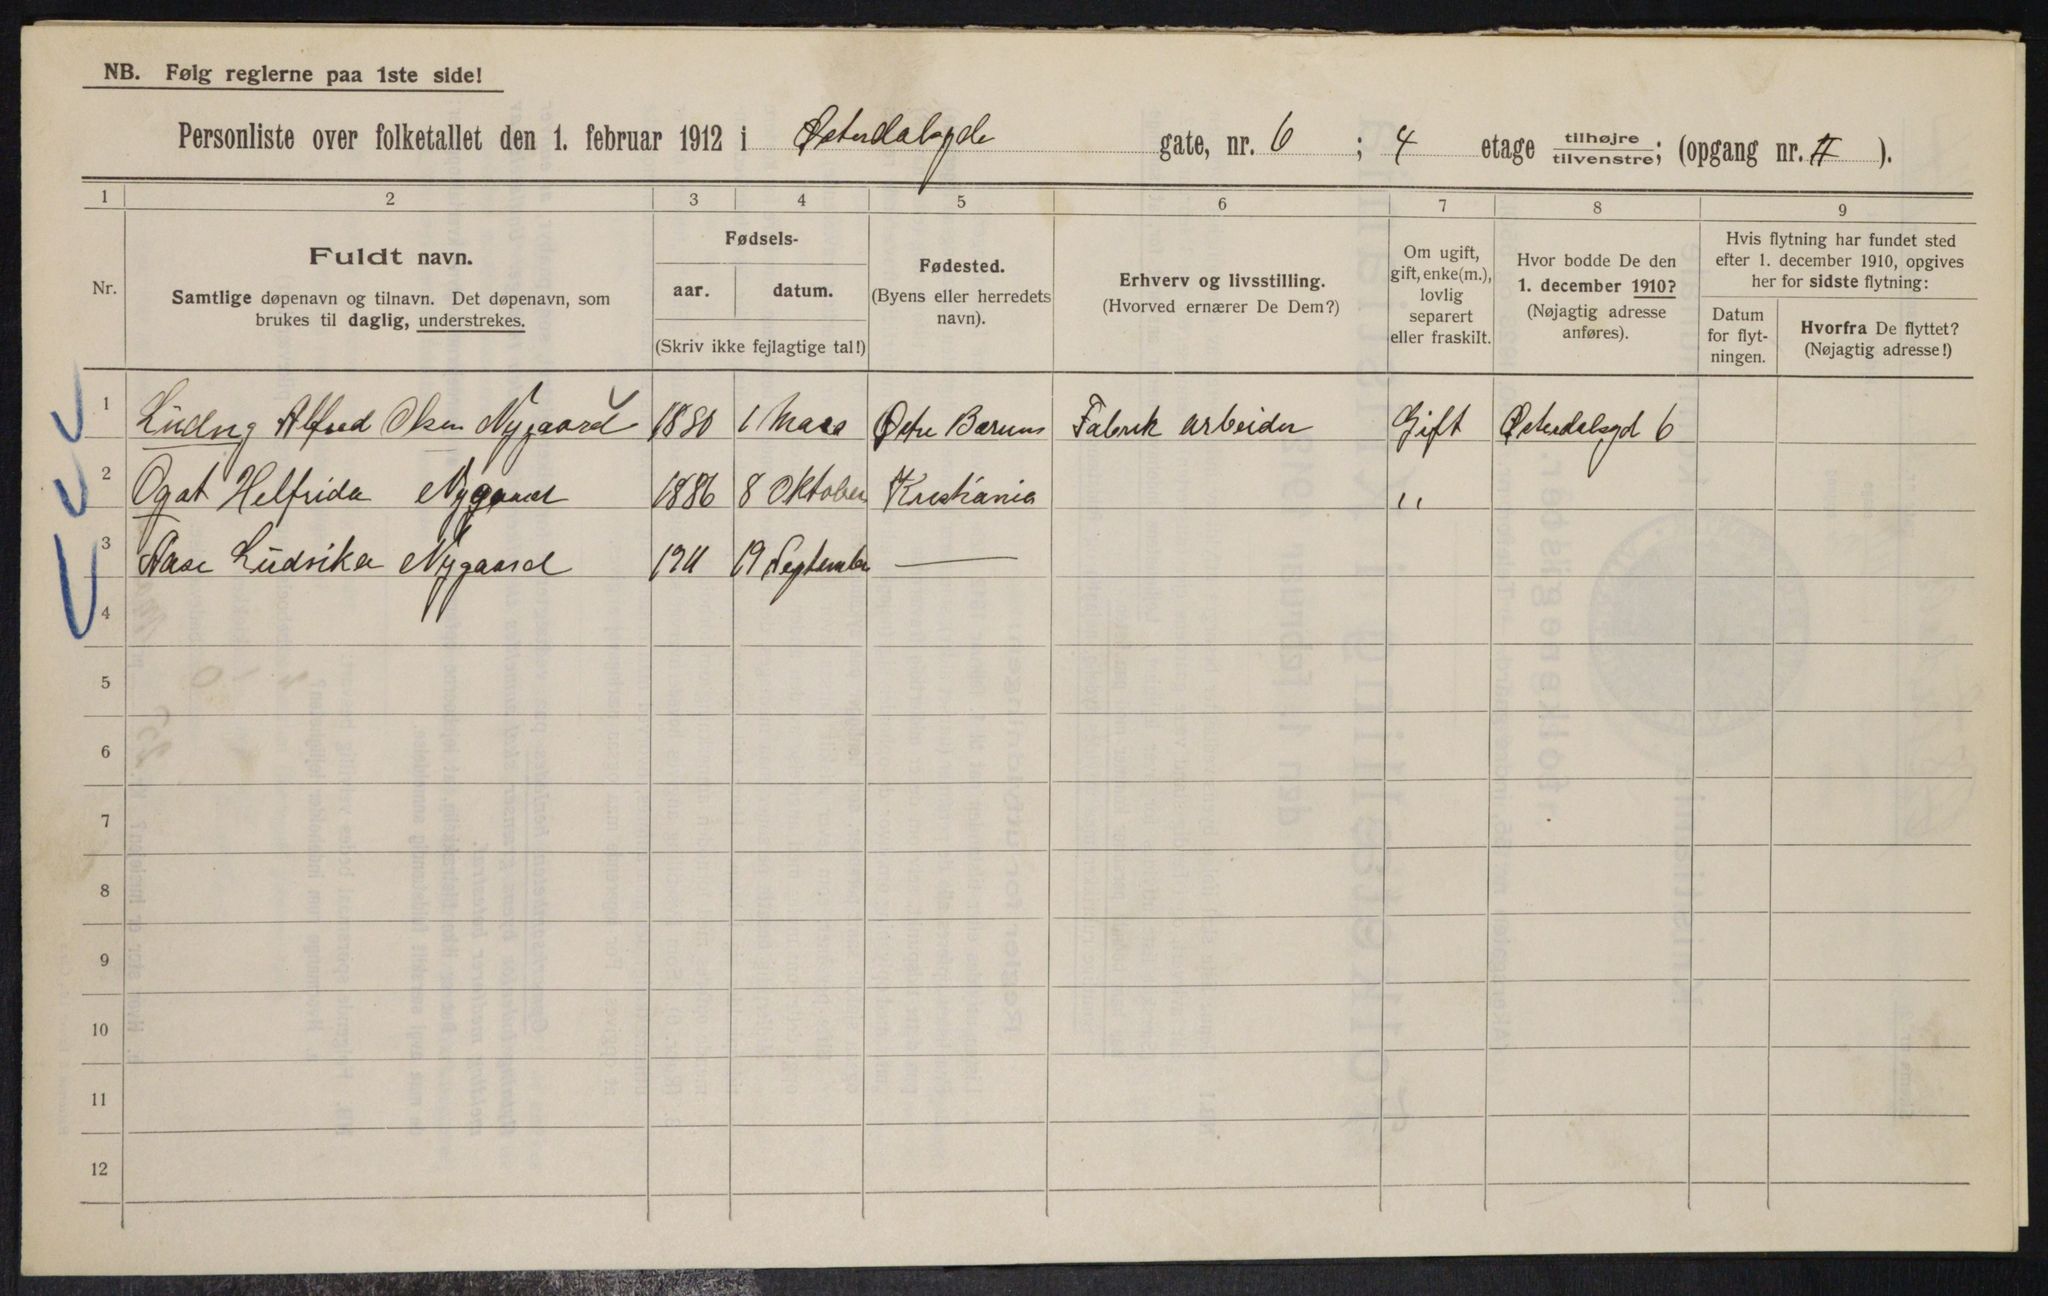 NB. Følg reglerne paa 1ste side!
Personliste over folketallet den 1. februar 1912 i Østerdalsgde gate, nr. 6 ; 4 etage tilhøjre/tilvenstre; (opgang nr. II ).
1 2 3 4 5 6 7 8 9
Nr.
Fuldt navn.
Samtlige døpenavn og tilnavn. Det døpenavn, som
brukes til daglig, understrekes.
Fødsels-
aar. datum.
(Skriv ikke fejlagtige tal!)
Fødested.
(Byens eller herredets
navn).
Erhverv og livsstilling.
(Hvorved ernærer De Dem?)
Om ugift,
gift, enke(m.),
lovlig
separert
eller fraskilt.
Hvor bodde De den
1. december 1910?
(Nøjagtig adresse
anføres).
Hvis flytning har fundet sted
efter 1. december 1910, opgives
her for sidste flytning:
Datum
for flyt-
ningen.
Hvorfra De flyttet?
(Nøjagtig adresse!)
1 Ludvig Alfred Olsen Nygaard 1880 1 Mars Østre Bærum Fabrik arbeider Gift Østerdalsgd 6
2 Ogat Helfrida Nygaard 1886 8 Oktober Kristiania "
3 Aase Ludvika Nygaard 1911 19 September —
4
5
6
7
8
9
10
11
12